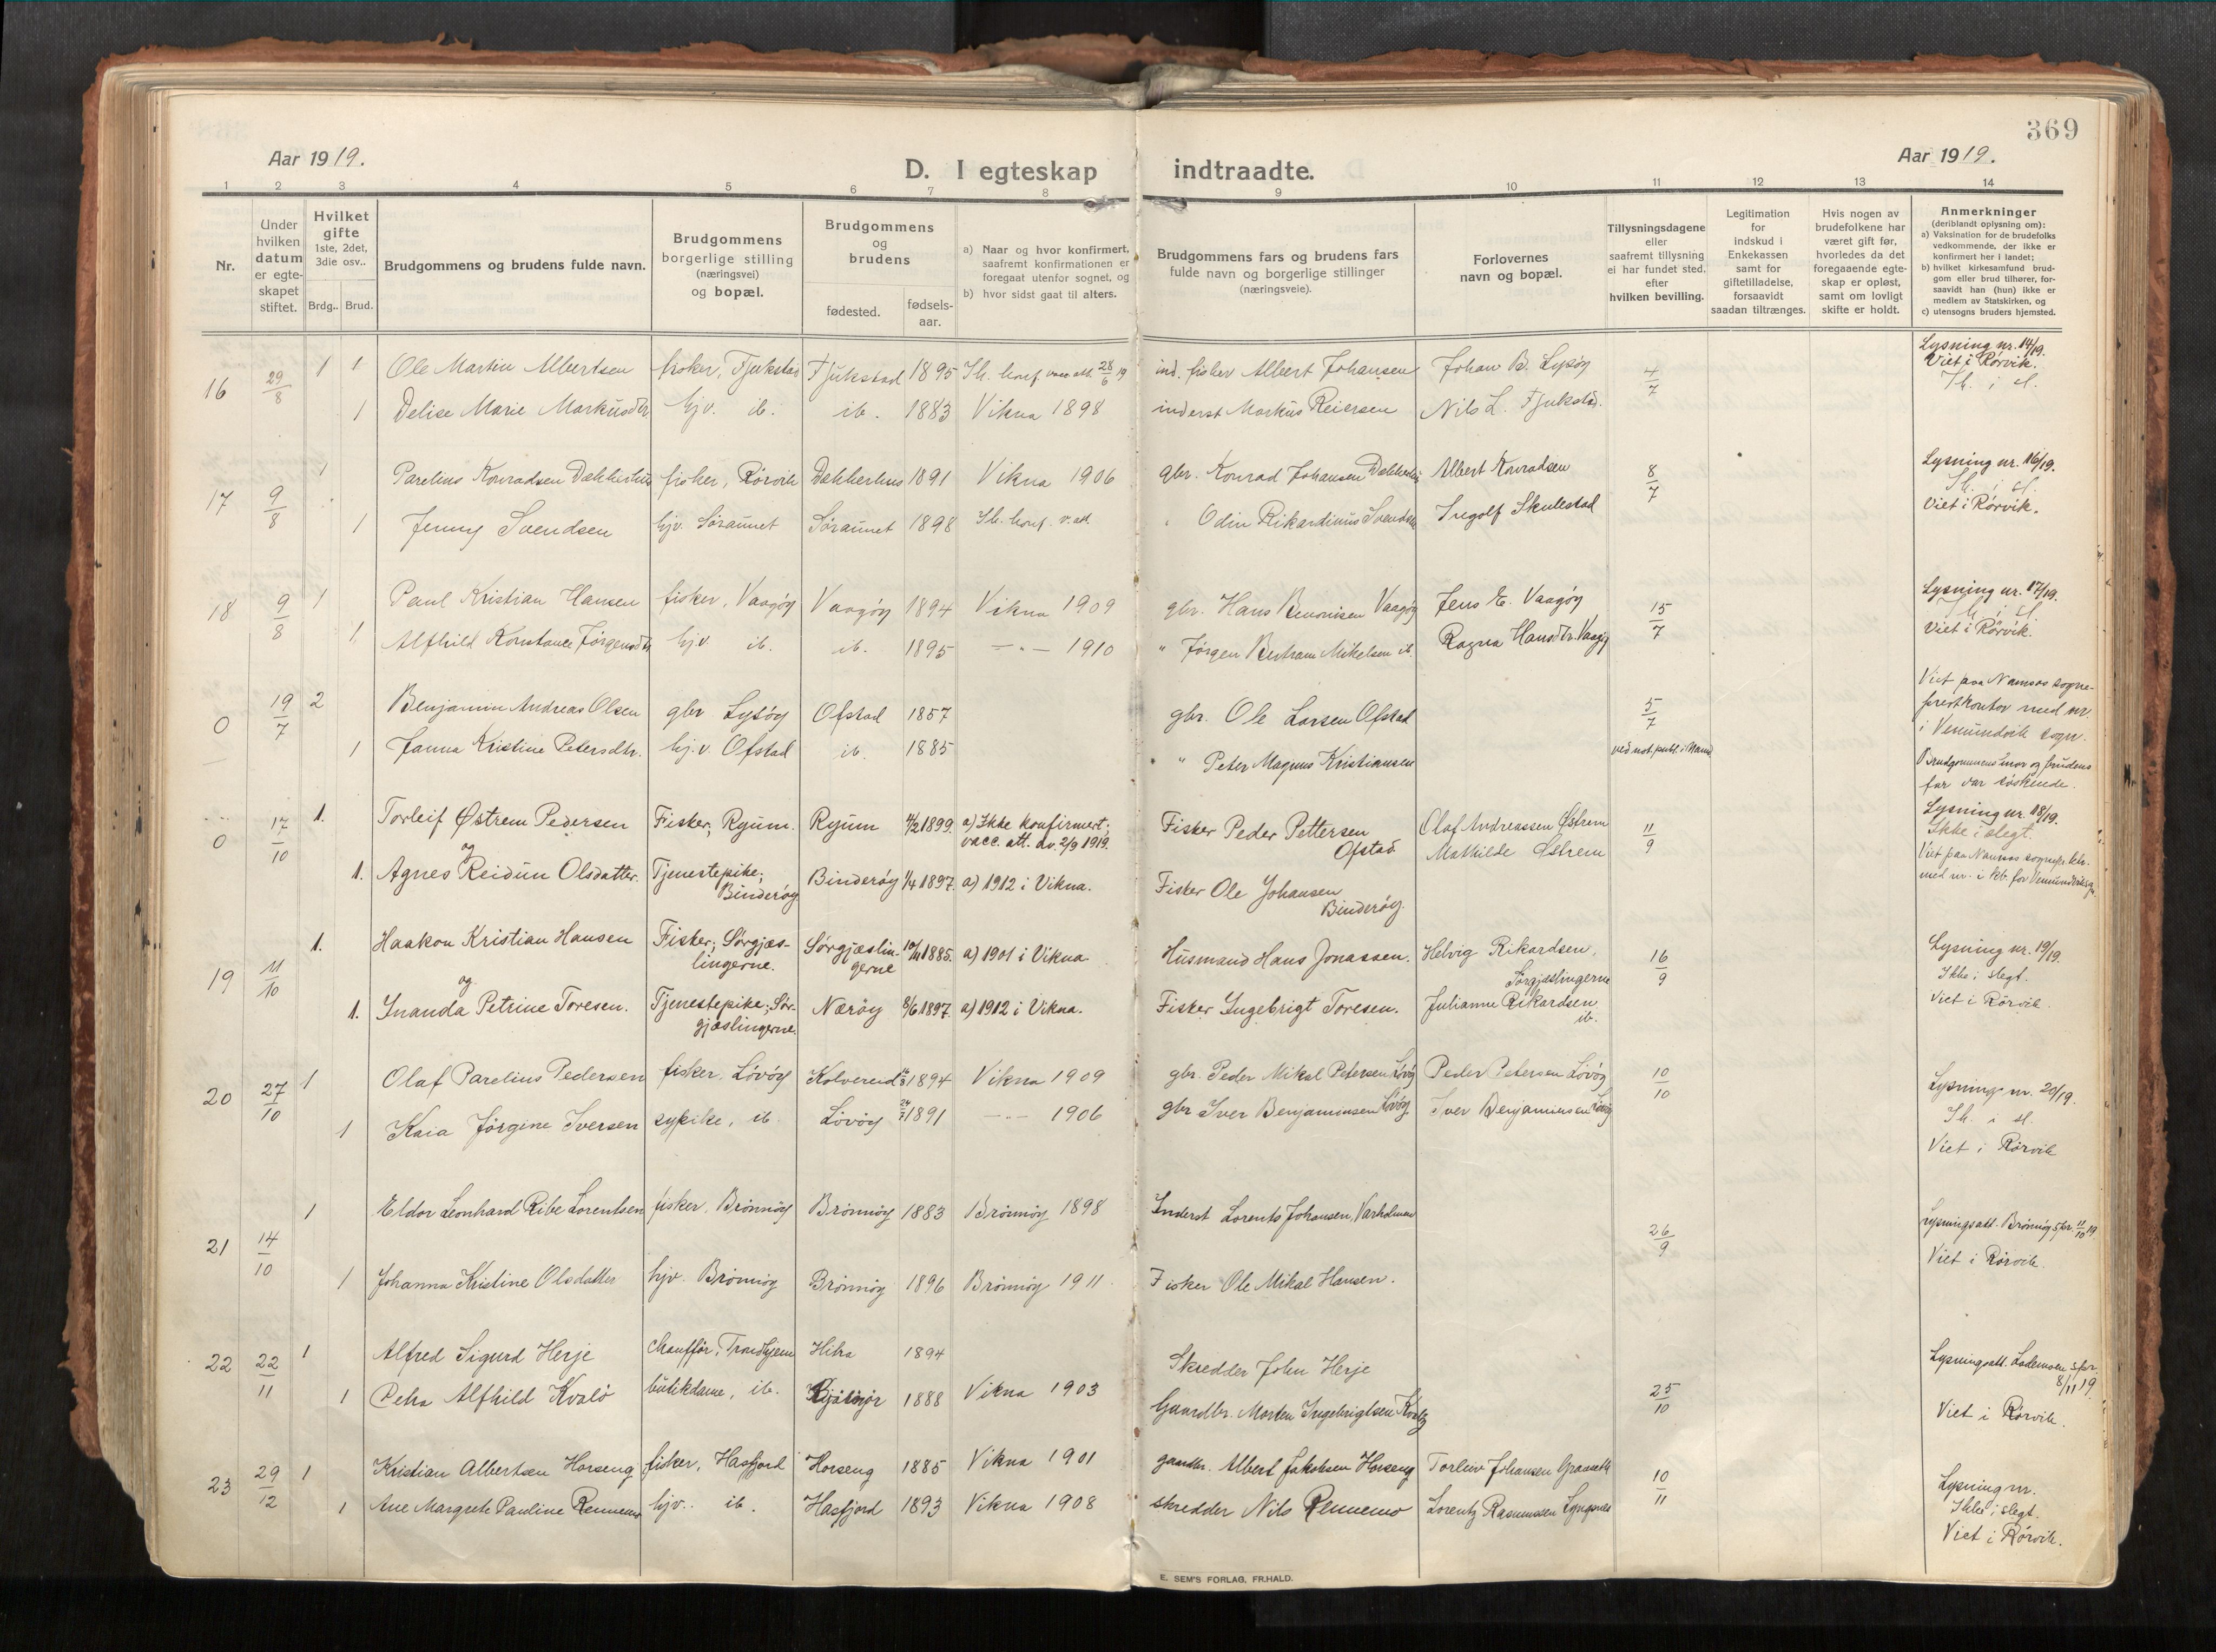 369
Aar 1919.
Aar 1919.
D. I egteskap indtraadte.
1 2 3 4 5 6 7 8 9 10 11 12 13 14
Nr.
Under hvilken datum er egteskapet stiftet.
Hvilket gifte 1ste, 2det, 3die osv..
Brdg.. Brud.
Brudgommens og brudens fulde navn.
Brudgommens borgerlige stilling (næringsvei) og bopæl.
Brudgommens og brudens
fødested.
fødsels-aar.
a) Naar og hvor konfirmert, saafremt konfirmationen er foregaat utenfor sognet, og
b) hvor sidst gaat til alters.
Brudgommens fars og brudens fars fulde navn og borgerlige stillinger (næringsveie).
Forlovernes navn og bopæl.
Tillysningsdagene eller saafremt tillysning ei har fundet sted. efter hvilken bevilling.
Legitimation for indskud i Enkekassen samt for giftetilladelse, forsaavidt saadan tiltrænges.
Hvis nogen av brudefolkene har været gift før, hvorledes da det foregaaende egteskap er opløst, samt om lovligt skifte er holdt.
Anmerkninger (deriblandt oplysning om):
a) Vaksination for de brudefolks vedkommende, der ikke er konfirmert her i landet;
b) hvilket kirkesamfund brudgom eller brud tilhører, forsaavidt han (hun) ikke er medlem av Statskirken, og
c) utensogns bruders hjemsted.
16 29/8 1 1 Ole Martin Albertsen fisker, Fjukstad Fjukstad 1895 Ik. konf. vacc att. 28/6 19 ind. fisker Albert Johansen Johan B. Lysøy 4/7 Lysning nr. 14/19. Viet i Rørvik. Ik. i sl.
1 Delise Marie Markusdtr hjv. ib. ib. 1883 Vikna 1898 inderst Markus Reiersen Nils L. Fjukstad.
17 9/8 1 Parelius Konradsen Dækkerhus fisker, Rørvik Dækkerhus 1891 Vikna 1906 gbr. Konrad Johansen Dækkerhus Albert Konradsen 8/7 Lysning nr. 16/19. Ik. i sl. Viet i Rørvik.
1 Jenny Svendsen hjv. Søraunet Søraunet 1898 Ik. konf. v. ad. Odin Rikardinus Svendsen Ingolf Skulestad
18 9/8 1 Paul Kristian Hansen fisker, Vaagøy Vaagøy 1894 Vikna 1909 gbr. Hans Benonisen Vaagøy Jens E. Vaagøy 15/7 Lysning nr. 17/19. Ik. i sl. Viet i Rørvik.
1 Alfhild Konstance Jørgensdtr hjv. ib. ib. 1895 —"— 1910 " Jørgen Bertram Mikelsen ib. Ragna Hansdtr. Vaagøy
0 19/7 2 Benjamin Andreas Olsen gbr Lysøy Ofstad 1857 gbr. Ole Larsen Ofstad 5/7 Viet paa Namsos sogneprestkontor med nr. i Vemundvik sogn.
1 Janna Kristine Petersdtr. hj.v. Ofstad ib. 1885 " Peter Magnus Kristiansen ved not. publ. i Nams. Brudgommens mor og brudens far var søskende.
0 17/10 1. Torleif Østrem Pedersen Fisker, Ryum. Ryum 4/2 1899. a) Ikke konfirmert; vacc. att. av. 2/9 1919. Fisker Peder Pettersen Ofstad Olaf Andreassen Østrem Mathilde Østrem 11/9 Lysning nr. 18/19. Ikke i slegt.
og
1. Agnes Reidun Olsdatter. Tjenestepike, Binderøy Binderøy 1/4 1897. a) 1912 i Vikna. Fisker Ole Johansen Binderøy. Viet paa Namsos sognepr. ktr. med nr. i kb. for Vemundvik sogn.
19 11/10 1. Haakon Kristian Hansen Fisker; Sørgjæslingerne. Sørgjæslingerne 10/11 1885. a) 1901 i Vikna Husmand Hans Jonassen. Helvig Rikardsen, Sørgjæslingerne 16/9 Lysning nr. 19/19. Ikke i slegt. Viet i Rørvik.
og
1. Inanda Petrine Toresen. Tjenestepike; Sørgjæslingerne. Nærøy 8/6 1897. a) 1912 i Vikna. Fisker Ingebrigt Toresen. Julianne Rikardsen ib.
20 27/10 1 Olaf Parelius Pedersen fisker, Løvøy Kolvereid 1894 Vikna 1909 gbr. Peder Mikal Petersen Løvøy Peder Petersen Løvøy 10/10 Lysning nr. 20/19. Ik. i sl. Viet i Rørvik
1 Kaia Jørgine Iversen sypike, ib. Løvøy 1891 —"— 1906 gbr Iver Benjaminsen Løvøy. Iver Benjaminsen Løvøy
21 14/10 1 Eldor Leonhard Ribe Lorentsen fisker, Brønnøy Brønnøy 1883 Brønnøy 1898 Inderst Lorents Johansen, Varholmen 26/9 Lysningsatt. Brønnøy spr. 11/10 19 Viet i Rørvik.
1 Johanna Kristine Olsdatter hjv. Brønnøy Brønnøy 1896 Brønnøy 1911. Fisker Ole Mikal Hansen.
22 22/11 1 Alfred Sigurd Herje chauffør, Trondhjem Hitra 1894 Skredder John Herje 25/10 Lysningsatt. Lademoen spr. 8/11 19. Viet i Rørvik.
1 Petra Alfhild Kvalø butikdame, ib. 1888 Vikna 1903 Gaardbr. Morten Ingebrigtsen Kvaløy
23 29/12 1 Kristian Albertsen Horseng fisker, Hasfjord Horseng 1885 Vikna 1901 gaardbr. Albert Jakobsen Horseng Torleiv Johansen 10/11 Lysning nr. Ikke i slegt. Viet i Rørvik.
1 Ane Margrete Pauline Rennemo hjv. ib. Hasfjord 1893 Vikna 1908 skredder Nils Rennemo Lorentz Rasmussen Lyngsnes
E. SEM'S FORLAG, FR.HALD.